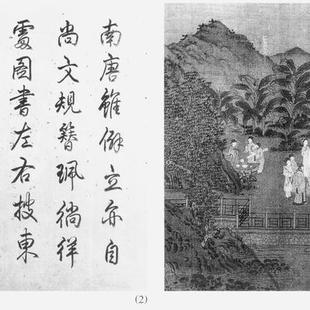 南唐雖立亦自
尚文規簪珮徜徉
處圖書左右披東
(2)